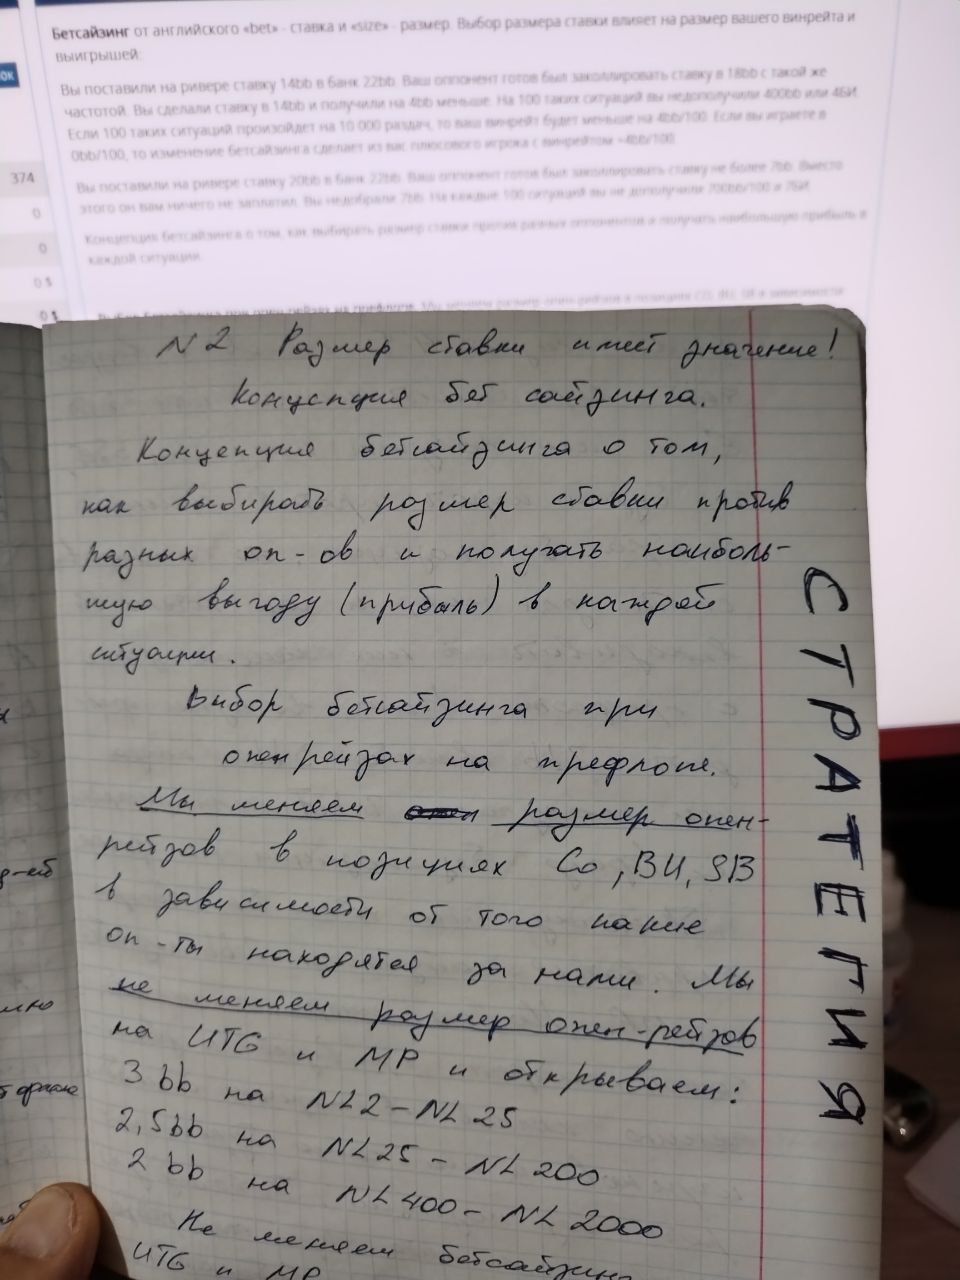 Бетсайзинг от английского «bet» - ставка и «size» - размер. Выбор размера ставки влияет на размер вашего винрейта и
выигрышей:
Вы поставили на ривере ставку 14bb в банк 22bb. Ваш оппонент готов был заколлировать ставку в 18bb с такой же
частотой. Вы сделали ставку в 14bb и получили на 4bb меньше. На 100 таких ситуаций вы недополучили 400bb или 4БИ.
Если 100 таких ситуаций произойдет на 10 000 раздач, то ваш винрейт будет меньше на 4bb/100. Если вы играете в
0bb/100, то изменение бетсайзинга сделает из вас плюсового игрока с винрейтом
Вы поставили на ривере ставку 20bb в банк 22bb. Ваш оппонент готов был заколлировать ставку не более 7bb. Вместо
этого он вам ничего не заплатил. Вы недобрали 7bb. На каждые 100 ситуаций вы не дополучили 700bb/100 и 7БИ.
Концепция бетсайзинга о том, как выбирать размер ставки против разных оппонентов и получать наибольшую прибыль в
каждой ситуации.
ОК
374
0
0
0 $
0 $
N2 Размер ставки имеет значение!
Концепция бет сайзинга.
Концепция бетсайзинга о том,
как выбирать размер ставки против
разных оп-ов и получать наиболь-
шую выгоду (прибыль) в каждой
ситуации.
Выбор бетсайзинга при
опен рейзах на префлопе.
Мы меняем размер опен-
рейзов в позициях Co, BU, SB
в зависимости от того какие
оп-ты находятся за нами. Мы
не меняем размер опен-рейзов
на UTG и MP и открываем:
3 bb на NL2 - NL 25
2,5bb на NL25 - NL 200
2 bb на NL400 - NL 2000
Не меняем бетсайзинг
UTG и MP
СТРАТЕГИЯ